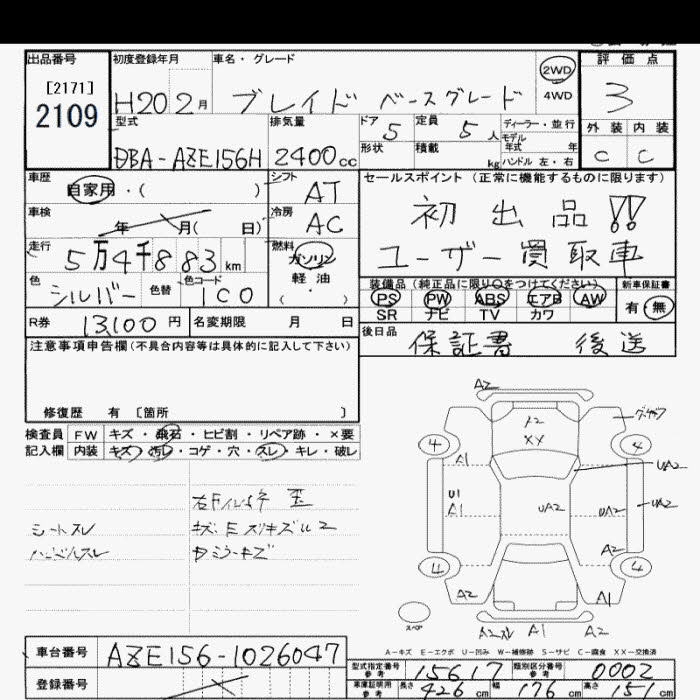 出品番号 初度登録年月 車名・グレード 2WD 評価点
[2171]
2109 H20 2月 ブレイド ベースグレード 4WD 3
型式 排気量 ドア 5 定員 5人 ディーラー・並行 外装 内装
モデル年式 年
DBA-AZE156H 2400cc 形状 積載 kg ハンドル 左・右 C C
車歴 自家用・( ) シフト AT セールスポイント(正常に機能するものに限ります)
車検 年 月( 日) 冷房 AC 初出品!!
走行 5万4千883km 燃料 ガソリン ユーザー買取車
色 シルバー 色替 色コード 1C0 軽油 ( ) 装備品(純正品に限り○をつけてください) 新車保証書
PS PW ABS エアB AW 有・無
SR ナビ TV カワ
R券 13,100円 名変期限 月 日 後日品 保証書 後送
注意事項申告欄(不具合内容等は具体的に記入して下さい)
修復歴 有 〔箇所 〕
検査員 FW キズ・飛石・ヒビ割・リペア跡・×要
記入欄 内装 キズ・汚レ・コゲ・穴・スレ・キレ・破レ
A2
A2
XX
4 4
A1 UA2
U1
A1 UA2 UA2 UA2
A2
4 4
A2 A2
A1 A2
シートスレ
スペア
A-キズ E-エクボ U-凹み W-補修跡 S-サビ C-腐食 XX-交換済
車台番号 AZE156-1026047
型式指定番号 参考 15617 類別区分番号 参考 0002
登録番号
車庫証明用 参考 長さ 426cm 幅 176cm 高さ 151cm